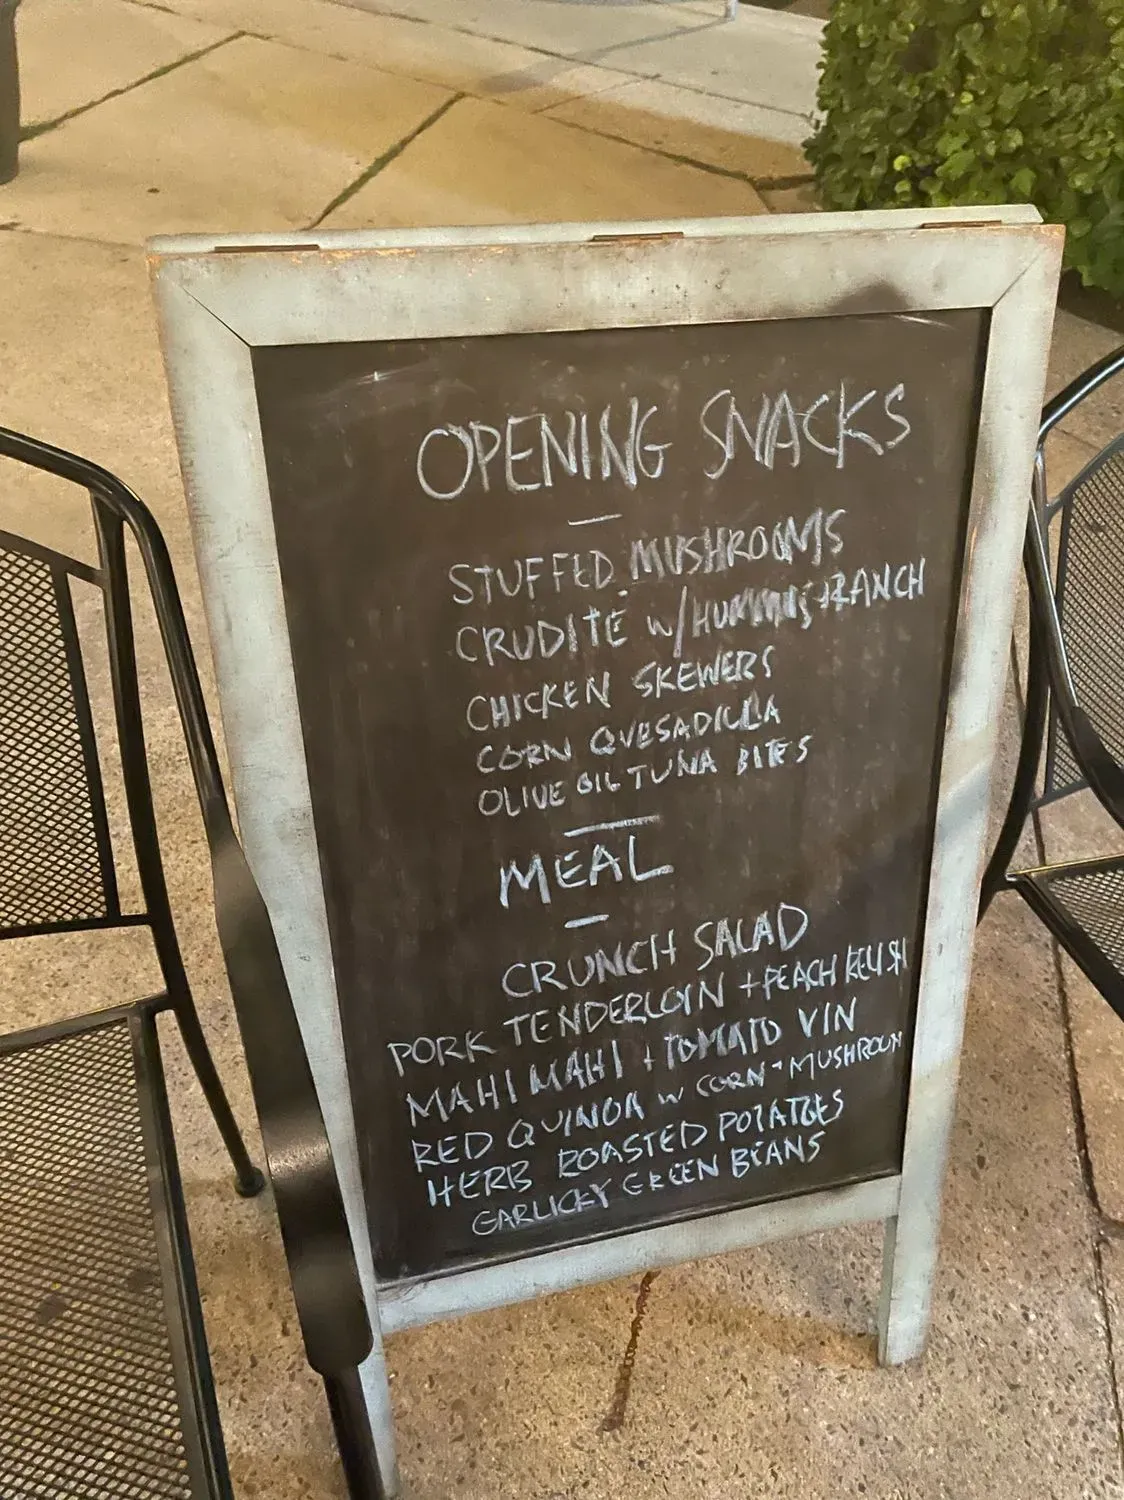 OPENING SNACKS
STUFFED MUSHROOMS
CRUDITÉ W/HUMMUS+RANCH
CHICKEN SKEWERS
CORN QUESADILLA
OLIVE OIL TUNA BITES
MEAL
CRUNCH SALAD
PORK TENDERLOIN + PEACH RELISH
MAHI MAHI + TOMATO VIN
RED QUINOA W CORN + MUSHROOM
HERB ROASTED POTATOES
GARLICKY GREEN BEANS